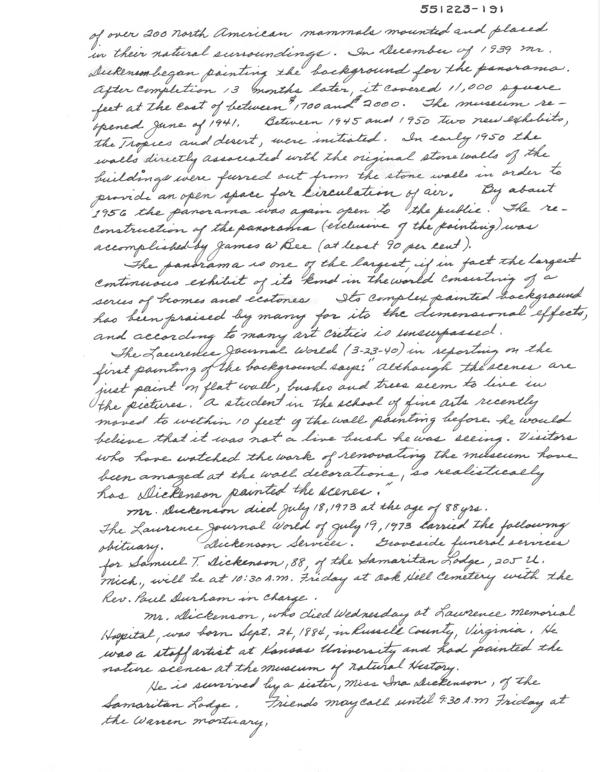 551223-191
of over 200 North American mammals mounted and placed
in their natural surroundings. In December of 1939 Mr.
Dickenson began painting the background for the panorama.
After completion 13 months later, it covered 11,000 square
feet at the cost of between $1700 and $2000. The museum re-
opened June of 1941. Between 1945 and 1950 two new exhibits,
the Tropics and desert, were initiated. In early 1950 the
walls directly associated with the original stone walls of the
buildings were furred out from the stone walls in order to
provide an open space for circulation of air. By about
1956 the panorama was again open to the public. The re-
construction of the panorama (exclusive of the painting) was
accomplished by James W Bee (at least 90 per cent).
The panorama is one of the largest, if in fact the largest
continuous exhibit of its kind in the world consisting of a
series of biomes and ecotones Its complex painted background
has been praised by many for its the dimensional effects,
and according to many art critics is unsurpassed.
The Lawrence Journal World (3-23-40) in reporting on the
first painting of the background says: "Although the scenes are
just paint on flat wall, bushes and trees seem to live in
the pictures. A student in the school of fine arts recently
moved to within 10 feet of the wall painting before he would
believe that it was not a live bush he was seeing. Visitors
who have watched the work of renovating the museum have
been amazed at the wall decorations, so realistically
has Dickenson painted the scenes."
Mr. Dickenson died July 18, 1973 at the age of 88 yrs.
The Lawrence Journal World of July 19, 1973 carried the following
obituary. Dickenson Services. Graveside funeral services
for Samuel T. Dickenson, 88, of the Samaritan Lodge, 205 N.
Mich., will be at 10:30 A.M. Friday at Oak Hill Cemetery with the
Rev. Paul Durham in charge.
Mr. Dickenson, who died Wednesday at Lawrence Memorial
Hospital, was born Sept. 24, 1884, in Russell County, Virginia. He
was a staff artist at Kansas University and had painted the
nature scenes at the Museum of Natural History.
He is survived by a sister, Miss Ina Dickenson, of the
Samaritan Lodge. Friends may call until 9:30 A.M Friday at
the Warren mortuary.